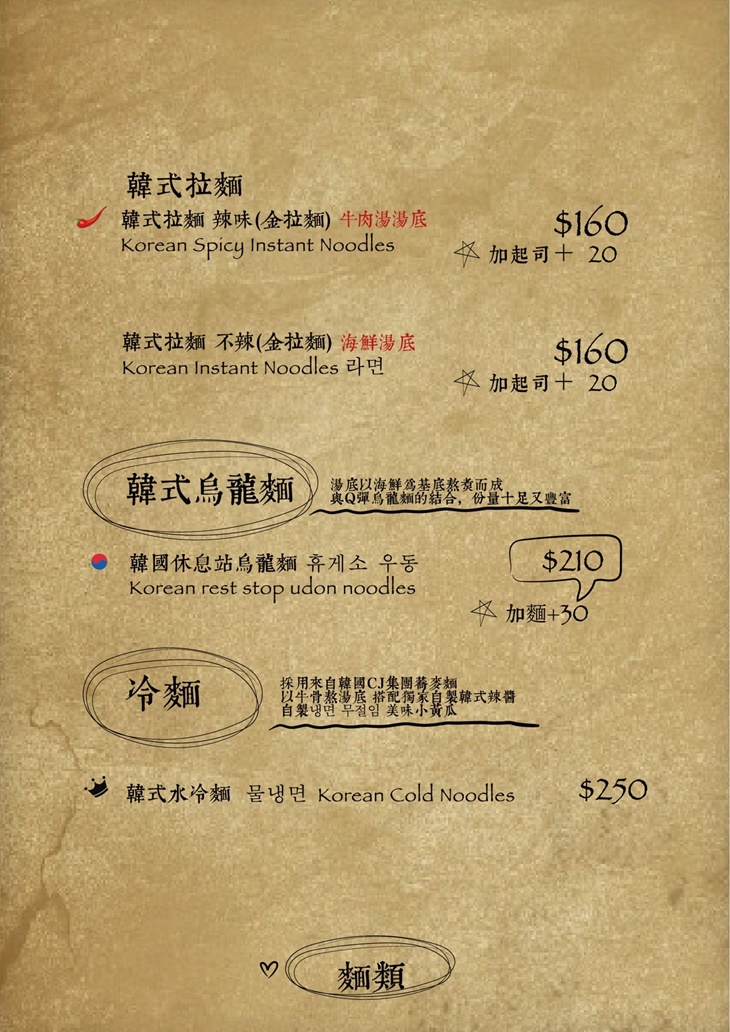 韓式拉麵
韓式拉麵 辣味(金拉麵) 牛肉湯湯底
$160
Korean Spicy Instant Noodles
加起司＋ 20
韓式拉麵 不辣(金拉麵) 海鮮湯底
$160
Korean Instant Noodles 라면
加起司＋ 20
韓式烏龍麵
湯底以海鮮為基底熬煮而成
與Q彈烏龍麵的結合，份量十足又豐富
韓國休息站烏龍麵 휴게소 우동
$210
Korean rest stop udon noodles
加麵+30
冷麵
採用來自韓國CJ集團蕎麥麵
以牛骨熬湯底 搭配獨家自製韓式辣醬
自製냉면 무절임 美味小黃瓜
韓式水冷麵 물냉면 Korean Cold Noodles $250
麵類